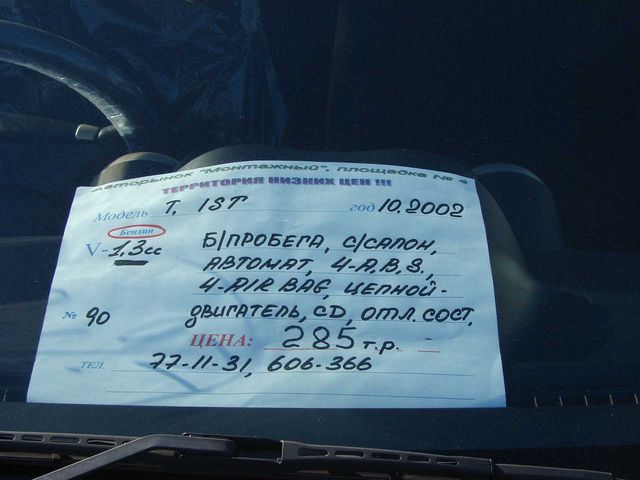 Авторынок "Монтажный", площадка №
ТЕРРИТОРИЯ НИЗКИХ ЦЕН !!!
Модель Т. IST год 10.2002
Бензин
V- 1,3 сс Б/ПРОБЕГА, С/САЛОН,
АВТОМАТ, 4-A.B.S.,
4-AIR BAG, ЦЕПНОЙ-
№ 90 ДВИГАТЕЛЬ, CD, ОТЛ. СОСТ.
ЦЕНА: 285 т.р.
ТЕЛ. 77-11-31, 606-366